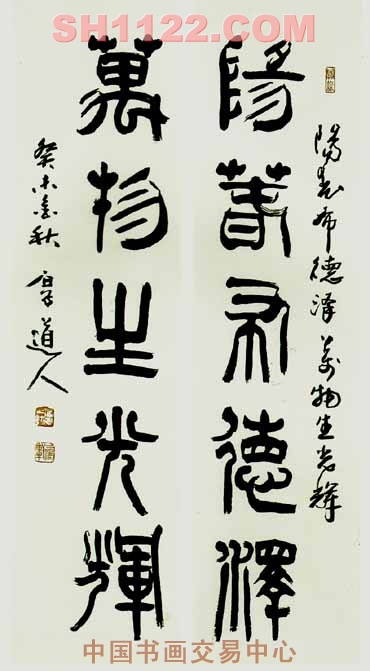 SH1122.COM
陽春布德澤萬物生光輝
陽春布德澤
萬物生光輝
癸未金秋
道人
中国书画交易中心